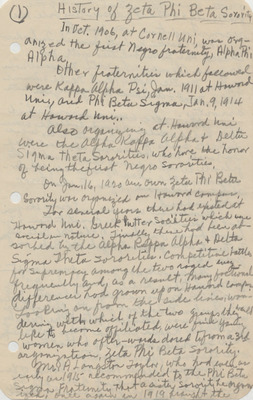 (1) History of Zeta Phi Beta Sorority
In Oct. 1906, at Cornell Uni, was org-
anized the first Negro fraternity, Alpha Phi
Alpha.
Other fraternities which followed
were Kappa Alpha Psi, Jan. 1911 at Howard
Uni, and Phi Beta Sigma, Jan. 9, 1914
at Howard Uni..
Also organizing at Howard Uni
were the Alpha Kappa Alpha & Delta
Sigma Theta Sororities, who have the honor
of being the first Negro Sororities.
On Jan. 16, 1920 our own Zeta Phi Beta
Sorority was organized on Howard campus.
For several years there had existed at
Howard Uni. Greek letter Societies which were
social in nature. Finally, these had been ab-
sorbed by the Alpha Kappa Alpha & Delta
Sigma Theta Sororities. Competitive battles
for supremacy among the two raged
frequently and, as a result, many bitter
differences had grown up on Howard campus
Looking on from the side lines, won-
dering with which of the two groups they would
like to become affiliated, were five young
women who afterwards dared to form a 3rd
organization, Zeta Phi Beta Sorority.
Mrs. A. Langston Taylor, who had even as
early as 1915 recommended to the Phi Beta
Sigma Fraternity that a sister sorority be organ-
ized, once again in 1919 brought the